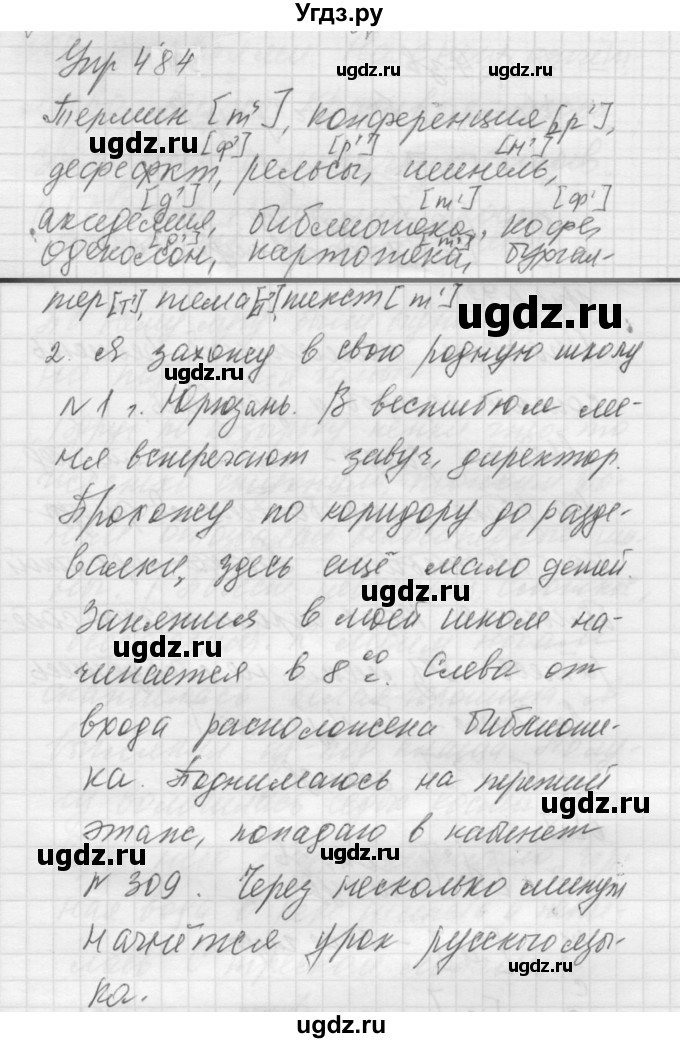 Угдз.ру
Упр 484
Термин [т'], конференция [р'],
[ф'] [р'] [н']
дефефкт, рельсы, шинель,
[д'] [т'] [ф']
академия, библиотека, кофе,
одеколон, картотека, бухгал-
тер [т'], тема [т'], текст [т']
2. Я захожу в свою родную школу
№1 г. Юрюзань. В вестибюле ме-
ня встречают завуч, директор.
Прохожу по коридору до разде-
валки, здесь ещё мало детей.
Занятия в моей школе на-
чинается в 8 00 с. Слева от
входа расположена библиоте-
ка. Поднимаюсь на третий
этаж, попадаю в кабинет
№ 309. Через несколько минут
начнётся урок русского язы-
ка.
ugdz.ru
ugdz.ru
ugdz.ru
ugdz.ru
ugdz.ru
ugdz.ru
ugdz.ru
ugdz.ru
ugdz.ru
ugdz.ru
ugdz.ru
ugdz.ru
ugdz.ru